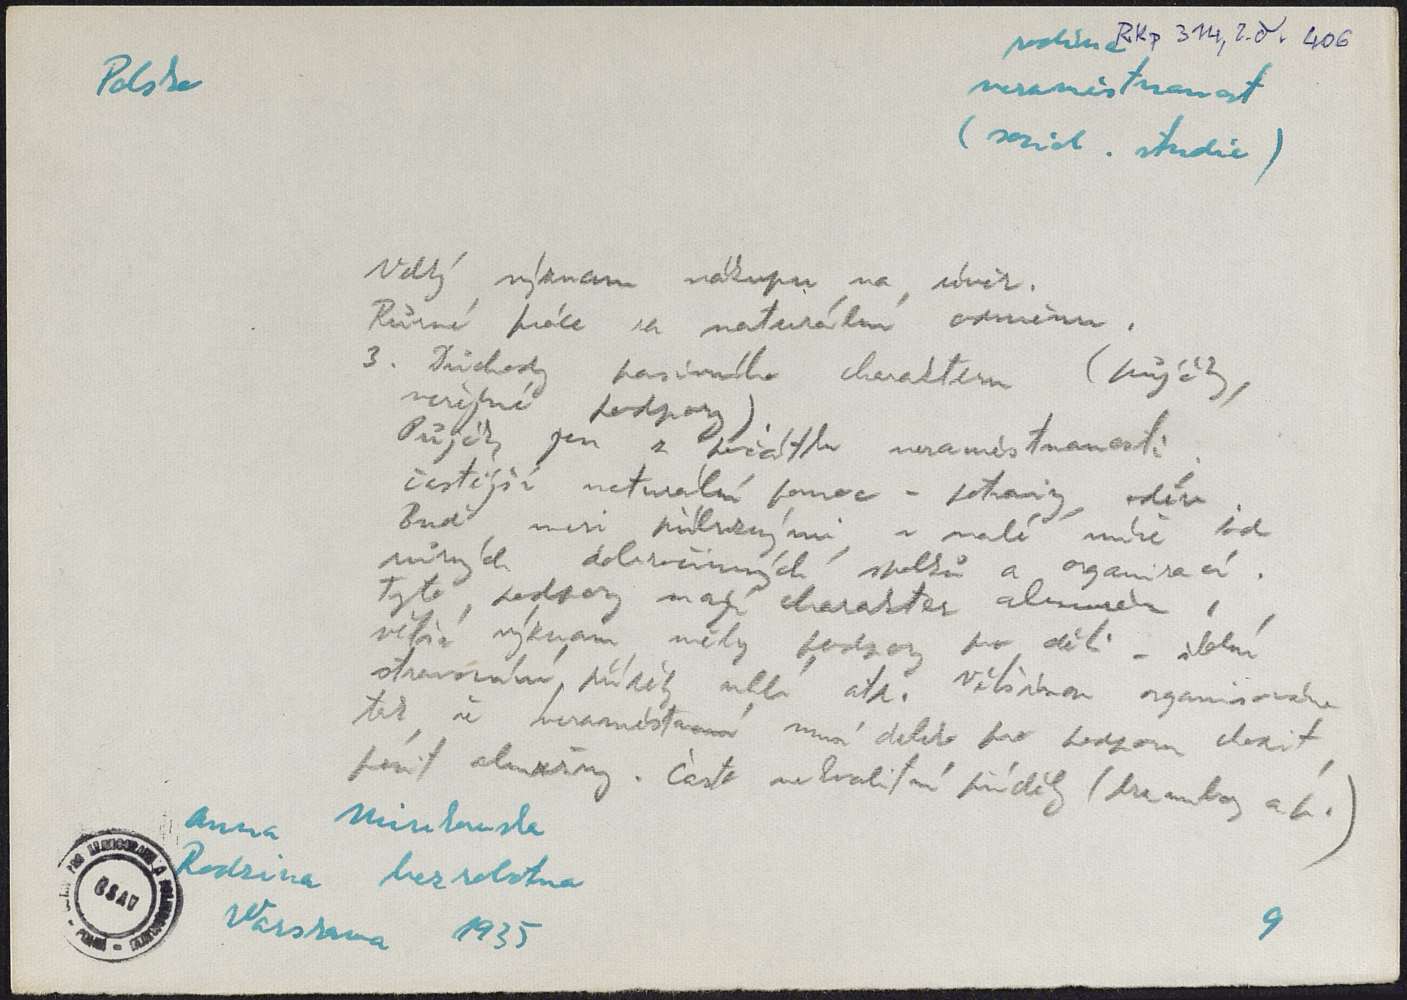 Polsko
RKp 314, z.č. 406
rodina
nezaměstnanost
(sociol. studie)
Velký význam nákupu na úvěr.
Různé práce za naturální odměnu.
3. Důchody pasivního charakteru (půjčky,
veřejné podpory).
Půjčky jen z počátku nezaměstnanosti.
častější naturální pomoc - potraviny, oděv.
Buď mezi příbuznými, v malé míře od
různých dobročinných spolků a organizací.
Tyto podpory mají charakter almužen,
větší význam měly podpory pro děti - školní
stravování, příděly uhlí atp. Většinou organisováno
tak, že nezaměstnaní musí daleko pro podporu chodit,
prosit almužny. Často nekvalitní příděly (brambory atp.)
Anna Minkowska
Rodzina bezrobotna
Warszawa 1935
9
ČSAV